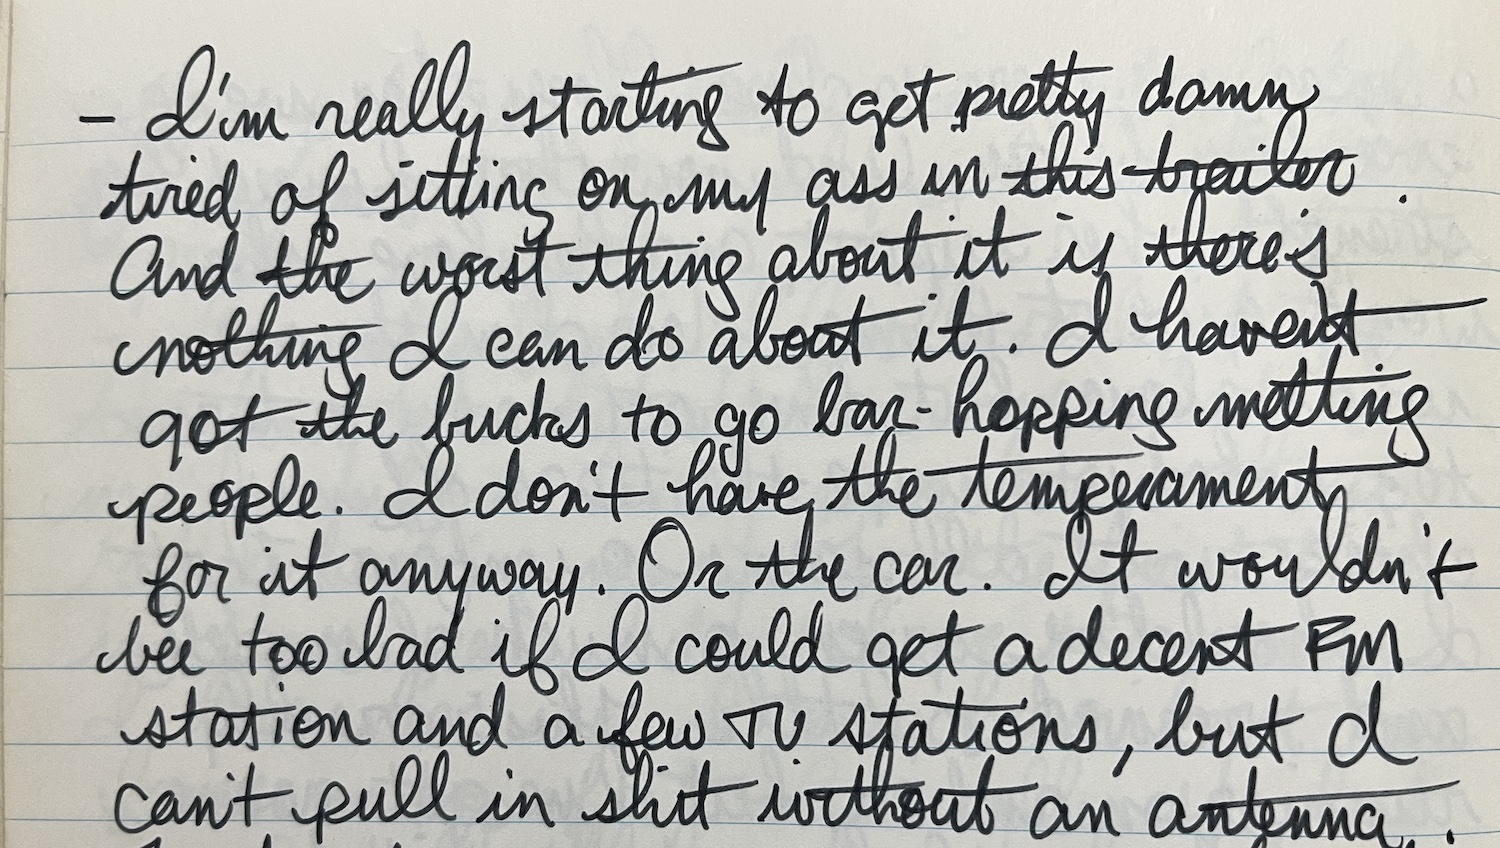 - I'm really starting to get pretty damn
tired of sitting on my ass in this trailer.
And the worst thing about it is there's
nothing I can do about it. I haven't
got the bucks to go bar-hopping metting
people. I don't have the temperament
for it anyway. Or the car. It wouldn't
bee too bad if I could get a decent FM
station and a few TV stations, but I
can't pull in shit without an antenna.